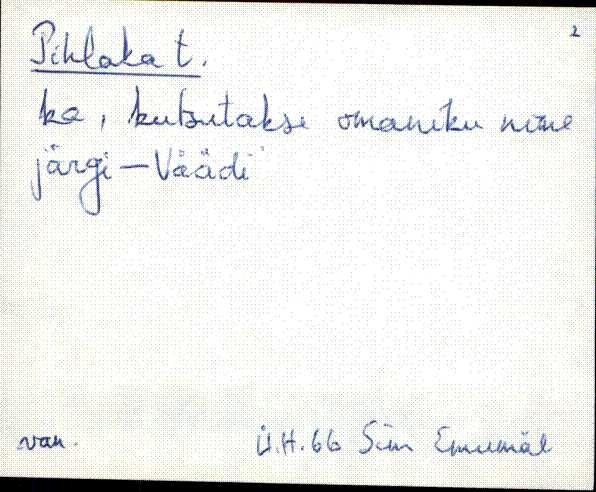 2
Pihlaka t.
ka, kutsutakse omaniku nime
järgi — Väädi
van. Ü.H. 66 Sim Emumäe